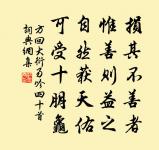 損其不善者
惟善則益之
自然获天佑
可受十朋龜
方回大衍易吟四十首
詞典網集